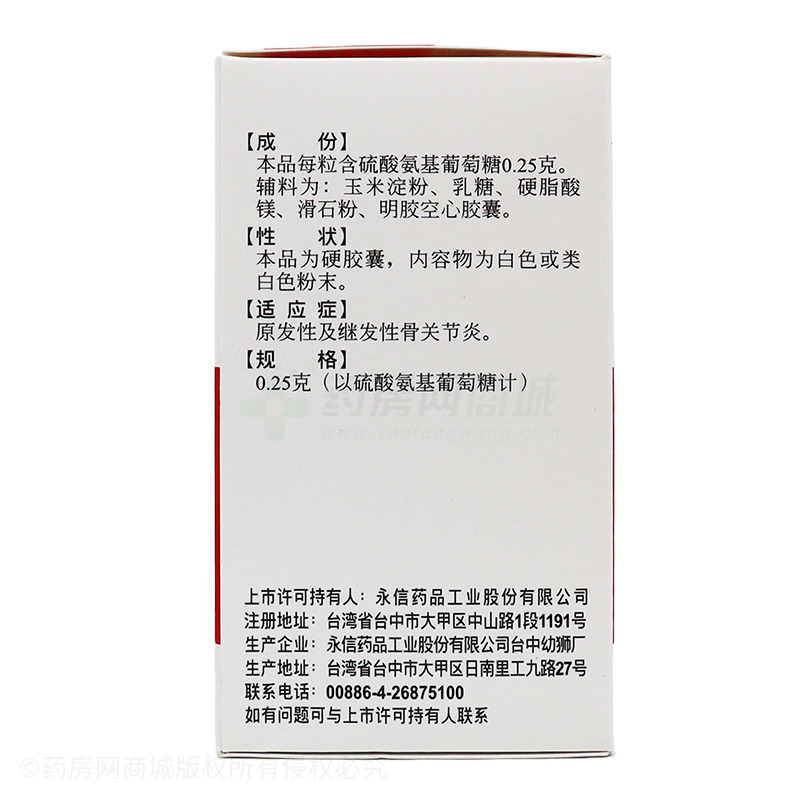 【成　份】
本品每粒含硫酸氨基葡萄糖0.25克。
辅料为：玉米淀粉、乳糖、硬脂酸
镁、滑石粉、明胶空心胶囊。
【性　状】
本品为硬胶囊，内容物为白色或类
白色粉末。
【适应症】
原发性及继发性骨关节炎。
【规　格】
0.25克（以硫酸氨基葡萄糖计）
药房网商城
www.yaofangwang.com
上市许可持有人：永信药品工业股份有限公司
注册地址：台湾省台中市大甲区中山路1段1191号
生产企业：永信药品工业股份有限公司台中幼狮厂
生产地址：台湾省台中市大甲区日南里工九路27号
联系电话：00886-4-26875100
如有问题可与上市许可持有人联系
©药房网商城版权所有侵权必究